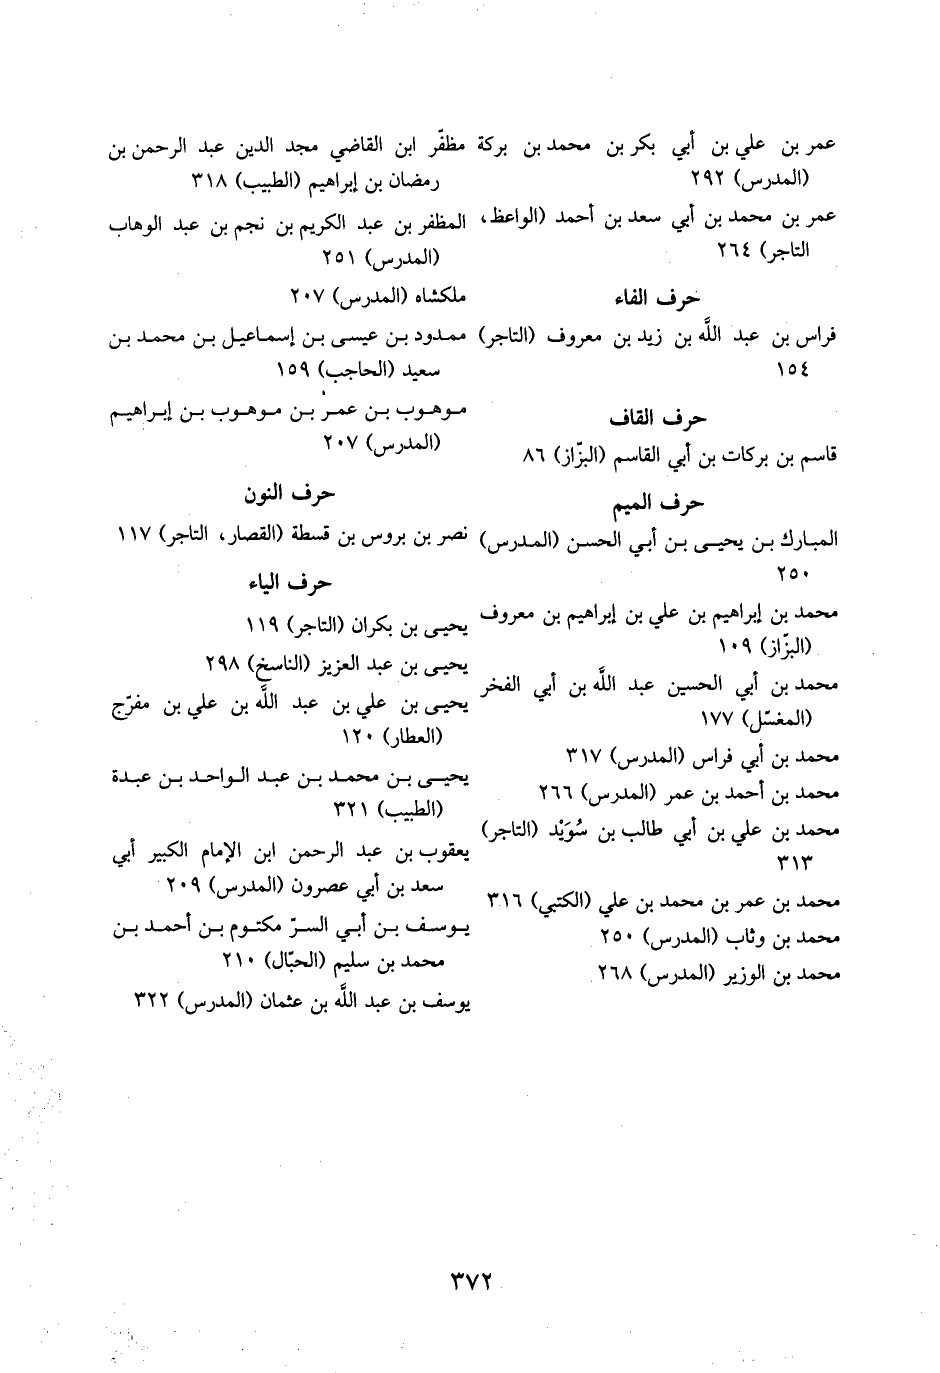 عمر بن علي بن أبي بكر بن محمد بن بركة
(المدرس) ٢٩٢
عمر بن محمد بن أبي سعد بن أحمد (الواعظ،
التاجر) ٢٦٤
حرف الفاء
فراس بن عبد اللَّه بن زيد بن معروف (التاجر)
١٥٤
حرف القاف
قاسم بن بركات بن أبي القاسم (البزّاز) ٨٦
حرف الميم
المبارك بن يحيى بن أبي الحسن (المدرس)
٢٥٠
محمد بن إبراهيم بن علي بن إبراهيم بن معروف
(البزّاز) ١٠٩
محمد بن أبي الحسين عبد اللَّه بن أبي الفخر
(المغسّل) ١٧٧
محمد بن أبي فراس (المدرس) ٣١٧
محمد بن أحمد بن عمر (المدرس) ٢٦٦
محمد بن علي بن أبي طالب بن سُوَيْد (التاجر)
٣١٣
محمد بن عمر بن محمد بن علي (الكتبي) ٣١٦
محمد بن وثاب (المدرس) ٢٥٠
محمد بن الوزير (المدرس) ٢٦٨
مظفّر ابن القاضي مجد الدين عبد الرحمن بن
رمضان بن إبراهيم (الطبيب) ٣١٨
المظفر بن عبد الكريم بن نجم بن عبد الوهاب
(المدرس) ٢٥١
ملكشاه (المدرس) ٢٠٧
ممدود بن عيسى بن إسماعيل بن محمد بن
سعيد (الحاجب) ١٥٩
موهوب بن عمر بن موهوب بن إبراهيم
(المدرس) ٢٠٧
حرف النون
نصر بن بروس بن قسطة (القصار، التاجر) ١١٧
حرف الياء
يحيى بن بكران (التاجر) ١١٩
يحيى بن عبد العزيز (الناسخ) ٢٩٨
يحيى بن علي بن عبد اللَّه بن علي بن مفرّج
(العطار) ١٢٠
يحيى بن محمد بن عبد الواحد بن عبدة
(الطبيب) ٣٢١
يعقوب بن عبد الرحمن ابن الإمام الكبير أبي
سعد بن أبي عصرون (المدرس) ٢٠٩
يوسف بن أبي السرّ مكتوم بن أحمد بن
محمد بن سليم (الحبّال) ٢١٠
يوسف بن عبد اللَّه بن عثمان (المدرس) ٣٢٢
٣٧٢